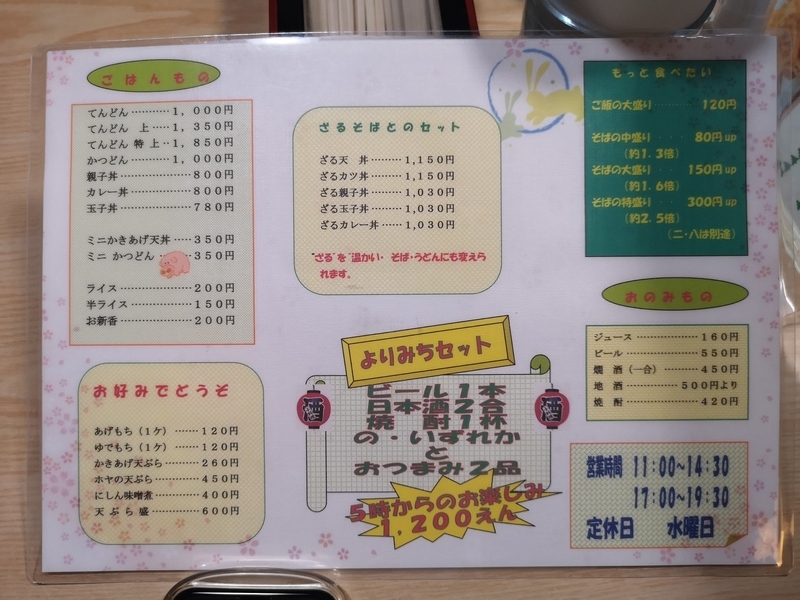 ごはんもの
てんどん…………1,000円
てんどん 上……1,350円
てんどん 特上‥1,850円
かつどん…………1,000円
親子丼……………800円
カレー丼…………800円
玉子丼……………780円
ミニかきあげ天丼……350円
ミニかつどん……350円
ライス……………200円
半ライス…………150円
お新香……………200円
お好みでどうぞ
あげもち(1ケ)……120円
ゆでもち(1ケ)……120円
かきあげ天ぷら……260円
ホヤの天ぷら………450円
にしん味噌煮………400円
天ぷら盛……………600円
ざるそばとのセット
ざる天 丼………1,150円
ざるカツ丼………1,150円
ざる親子丼………1,030円
ざる玉子丼………1,030円
ざるカレー丼……1,030円
"ざる"を"温かい・そば・うどんにも変えら
れます。
よりみちセット
ビール1本
日本酒2合
焼 酎1杯
の・いずれか
と
おつまみ2品
酒
酒
5時からのお楽しみ
1,200えん
もっと食べたい
ご飯の大盛り………120円
そばの中盛り………80円up
(約1.3倍)
そばの大盛り………150円up
(約1.6倍)
そばの特盛り………300円up
(約2.5倍)
(二・八は別途)
おのみもの
ジュース……………160円
ビール………………550円
燗 酒(一合)………450円
地 酒…………500円より
焼 酎………………420円
営業時間 11:00~14:30
17:00~19:30
定休日 水曜日